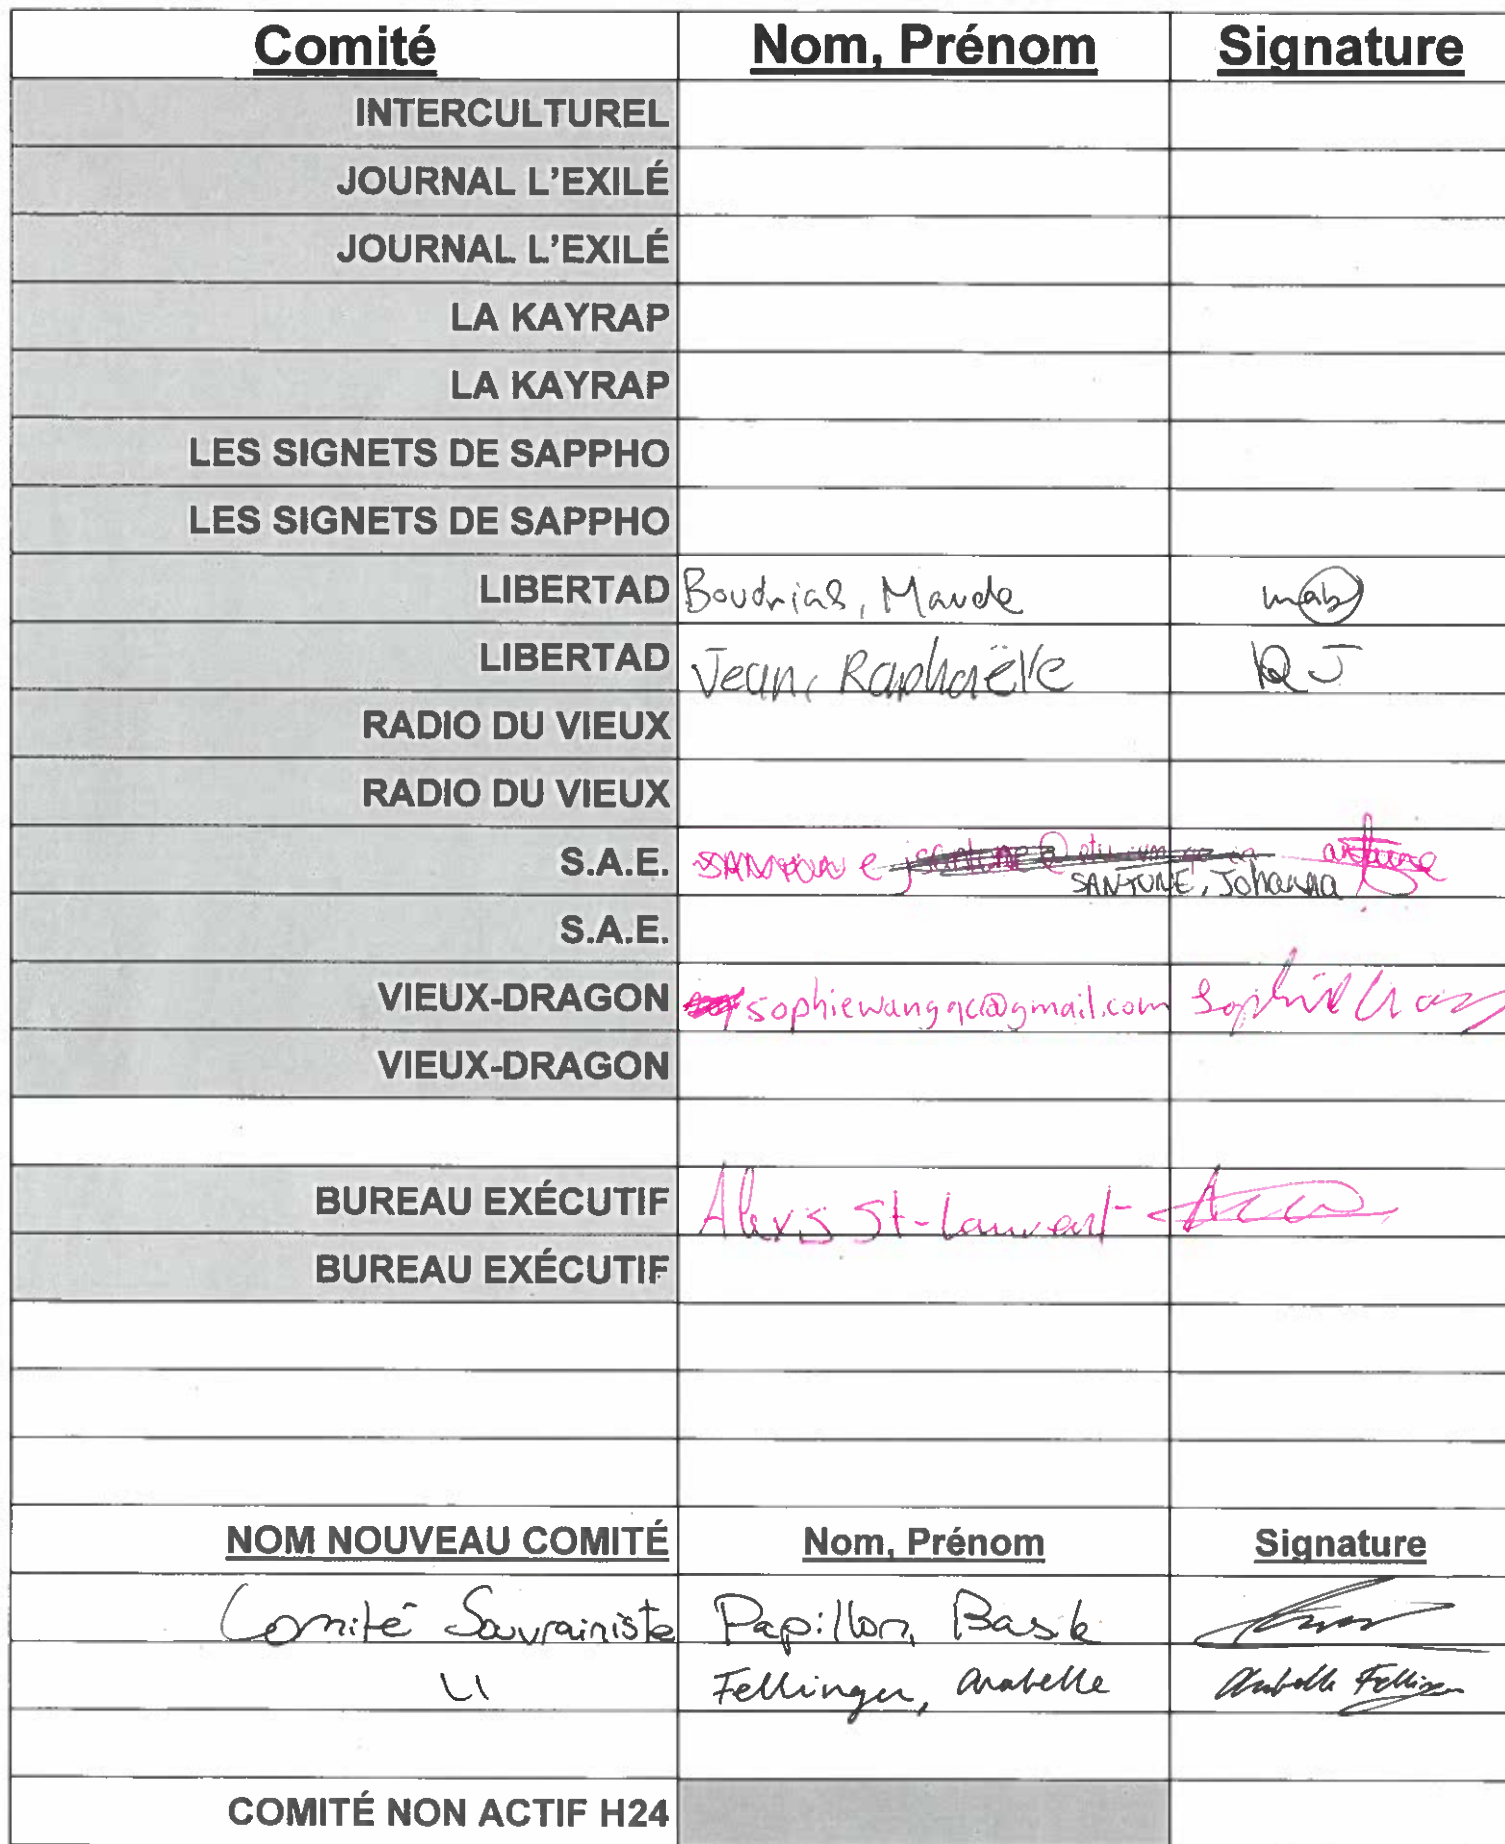 Comité Nom, Prénom Signature
INTERCULTUREL
JOURNAL L'EXILÉ
JOURNAL L'EXILÉ
LA KAYRAP
LA KAYRAP
LES SIGNETS DE SAPPHO
LES SIGNETS DE SAPPHO
LIBERTAD Boudrias, Maude mab
LIBERTAD Jean, Raphaëlle RJ
RADIO DU VIEUX
RADIO DU VIEUX
S.A.E.
SANTUNE, Johanna
S.A.E.
VIEUX-DRAGON sophiewangqc@gmail.com
VIEUX-DRAGON
BUREAU EXÉCUTIF Alexis St-Laurent
BUREAU EXÉCUTIF
NOM NOUVEAU COMITÉ Nom, Prénom Signature
Comité Souvrainiste Papillon, Basile
Fellinger, Arabelle Arabelle Fellinger
COMITÉ NON ACTIF H24